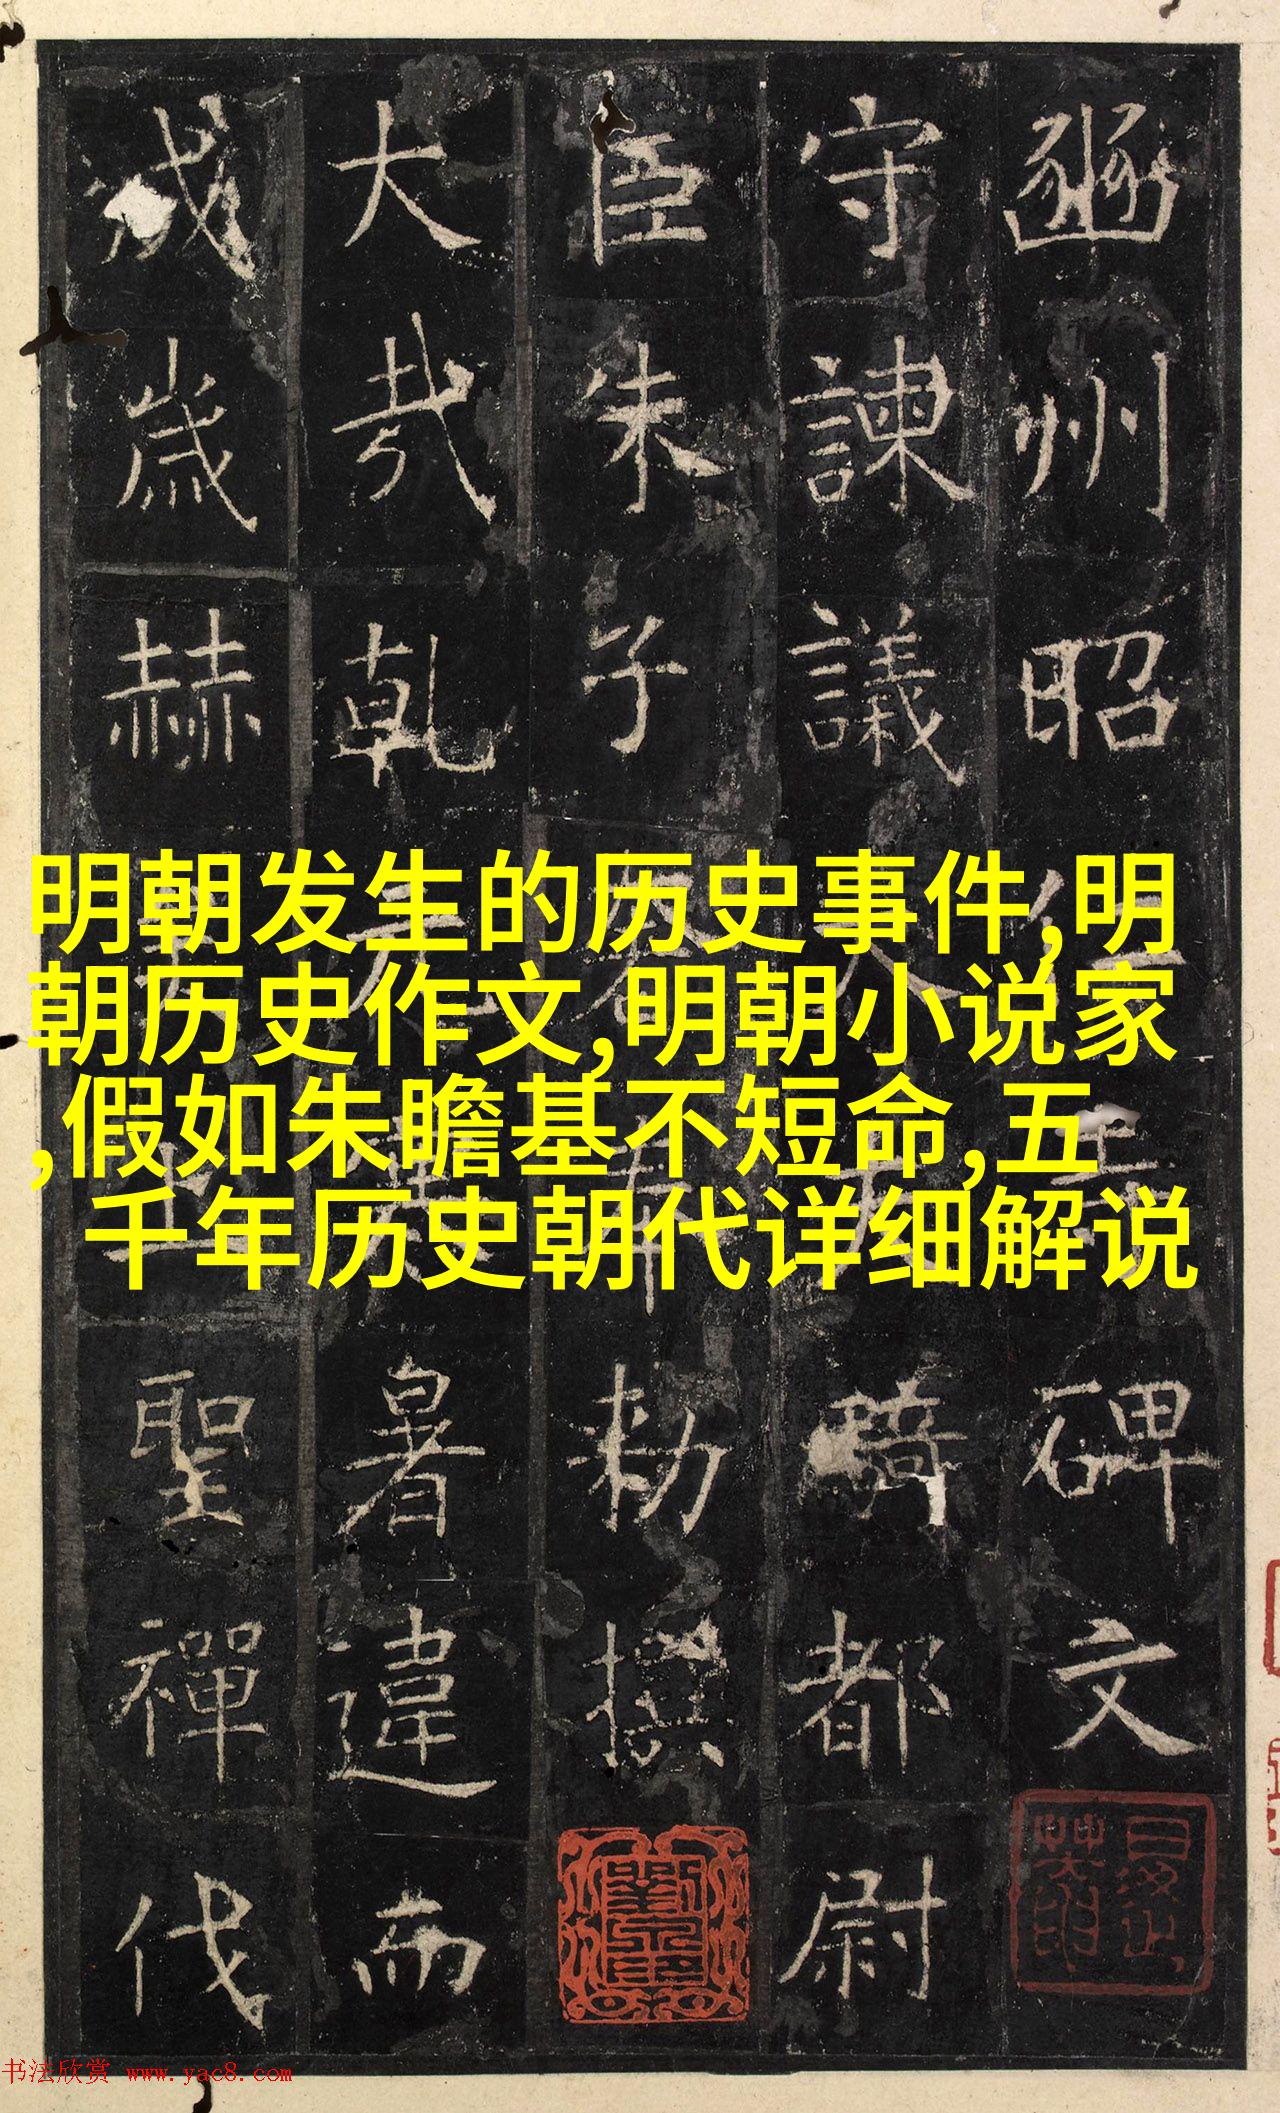 豳州昭仁碑文
守諫議大騎都尉
臣朱子奢奉勑撰
大哉乾元暑違而
成歲赫聖禪代
明朝发生的历史事件,明
朝历史作文,明朝小说家
,假如朱瞻基不短命,五
千年历史朝代详细解说
书法欣赏 www.yac8.com